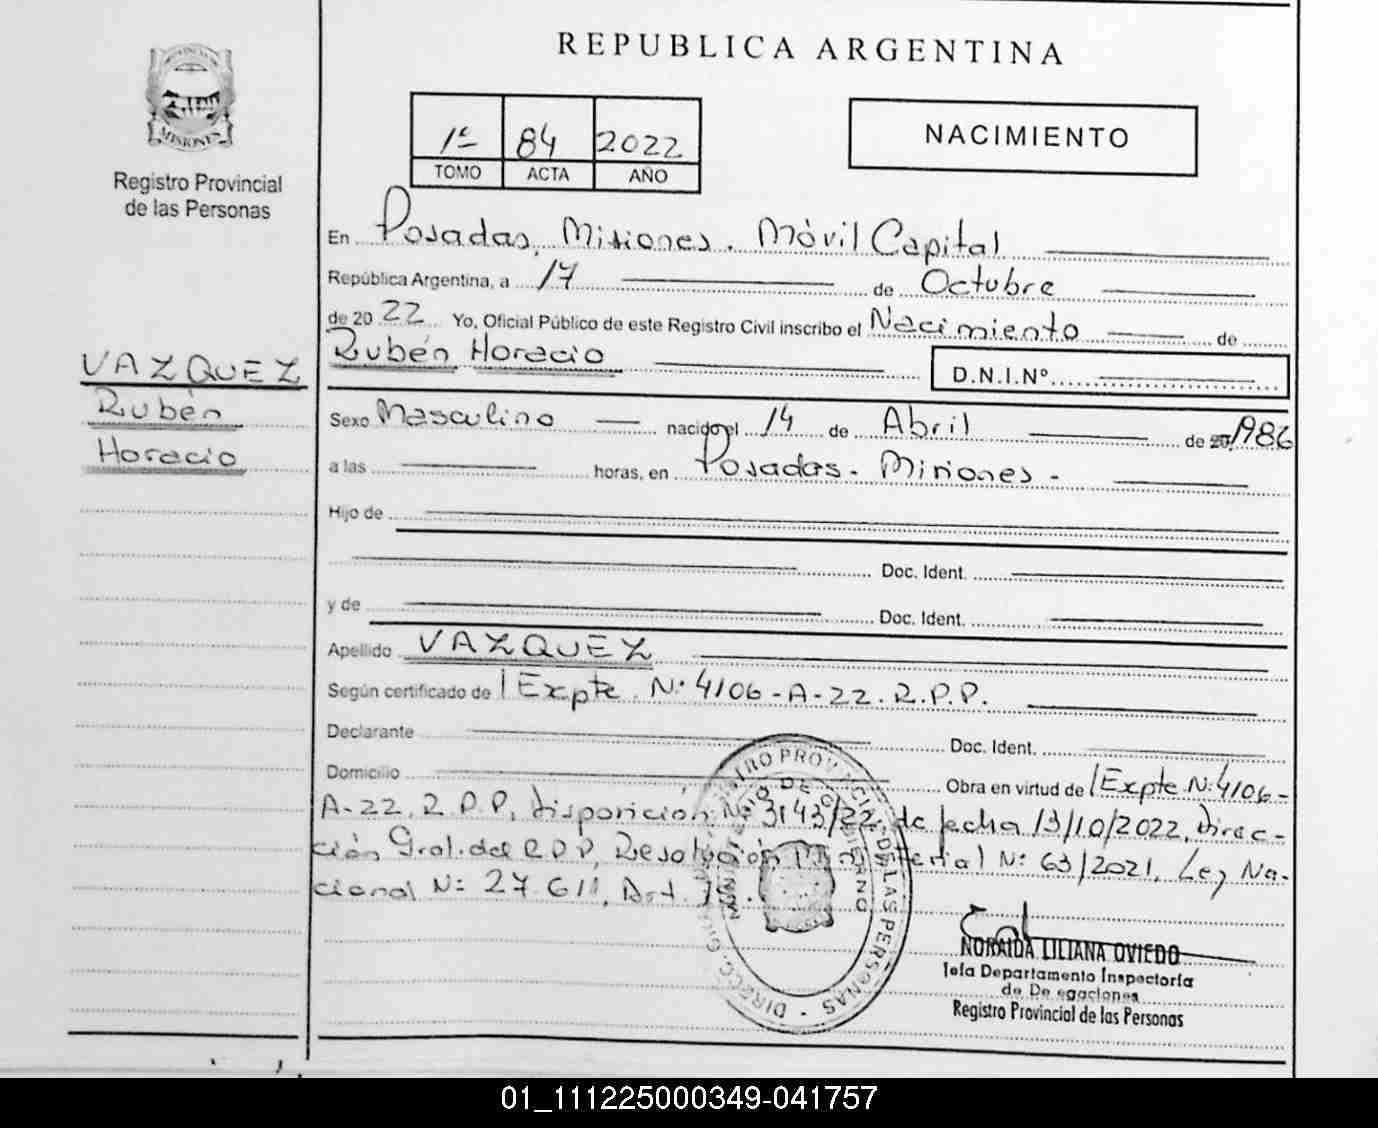 REPUBLICA ARGENTINA
PROVINCIA
MISIONES
Registro Provincial
de las Personas
1º 84 2022
TOMO ACTA AÑO
NACIMIENTO
En Posadas, Misiones. Móvil Capital
República Argentina, a 17 de Octubre
de 2022 Yo, Oficial Público de este Registro Civil inscribo el Nacimiento de
Rubén Horacio D.N.I.Nº
VAZQUEZ
Rubén
Horacio
Sexo Masculino nacido el 14 de Abril de 20 1986
a las horas, en Posadas - Misiones -
Hijo de
Doc. Ident.
y de Doc. Ident.
Apellido VAZQUEZ
Según certificado de Expte. Nº 4106-A-22. R.P.P.
Declarante Doc. Ident.
Domicilio Obra en virtud de Expte Nº 4106-
A-22. R.P.P, Disposición Nº 3143/22, de fecha 13/10/2022, Direc-
ción Gral. del R.P.P, Resolución Ministerial Nº 63/2021, Ley Na-
cional Nº 27.611, Art.
DIRECC. GRAL. REGISTRO PROVINCIAL DE LAS PERSONAS -
MINISTERIO DE GOBIERNO
NORAIDA LILIANA OVIEDO
Jefa Departamento Inspectoría
de Delegaciones
Registro Provincial de las Personas
01_111225000349-041757